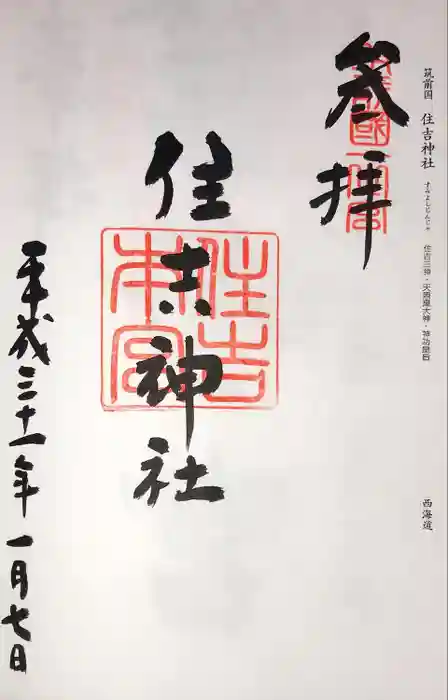 筑前国 住吉神社 すみよしじんじゃ 住吉三神・天照皇大神・神功皇后
西海道
参拝
筑前國一之宮
住吉神社
住吉
本宮
平成三十一年一月七日